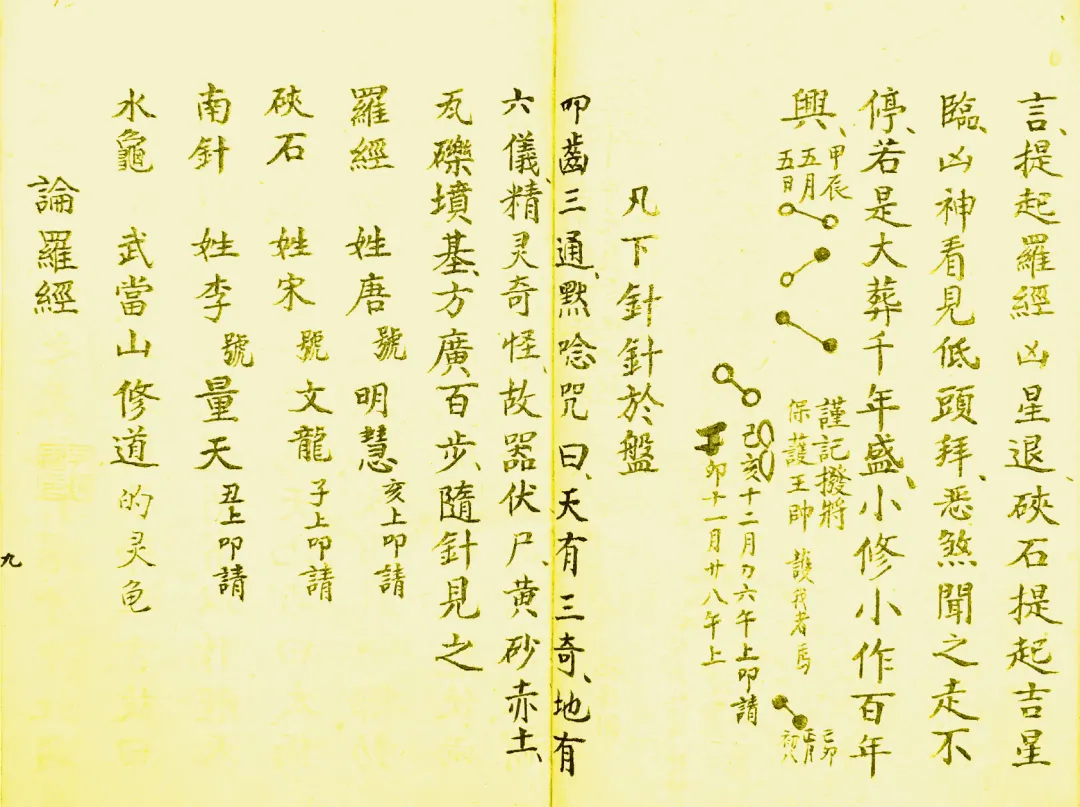 言、提起羅經凶星退硤石提起吉星
臨、凶神看見低頭拜、惡煞聞之走不
停、若是大葬千年盛、小修小作百年
興、
甲辰
五月
五日
謹記撥將
保護王帥 護我者馬
己卯
正月
己亥十二月初六午上叩請
卯十一月廿八午上
凡下針針於盤
叩齒三通、默唸咒曰、天有三奇、地有
六儀、精灵奇怪、故器伏尸、黄砂赤土、
瓦礫墳基、方廣百步、隨針見之
羅經 姓唐 號 明慧 亥上叩請
硤石 姓宋 號 文龍 子上叩請
南針 姓李 號 量天 丑上叩請
水龜 武當山修道的灵龟
論羅經
九